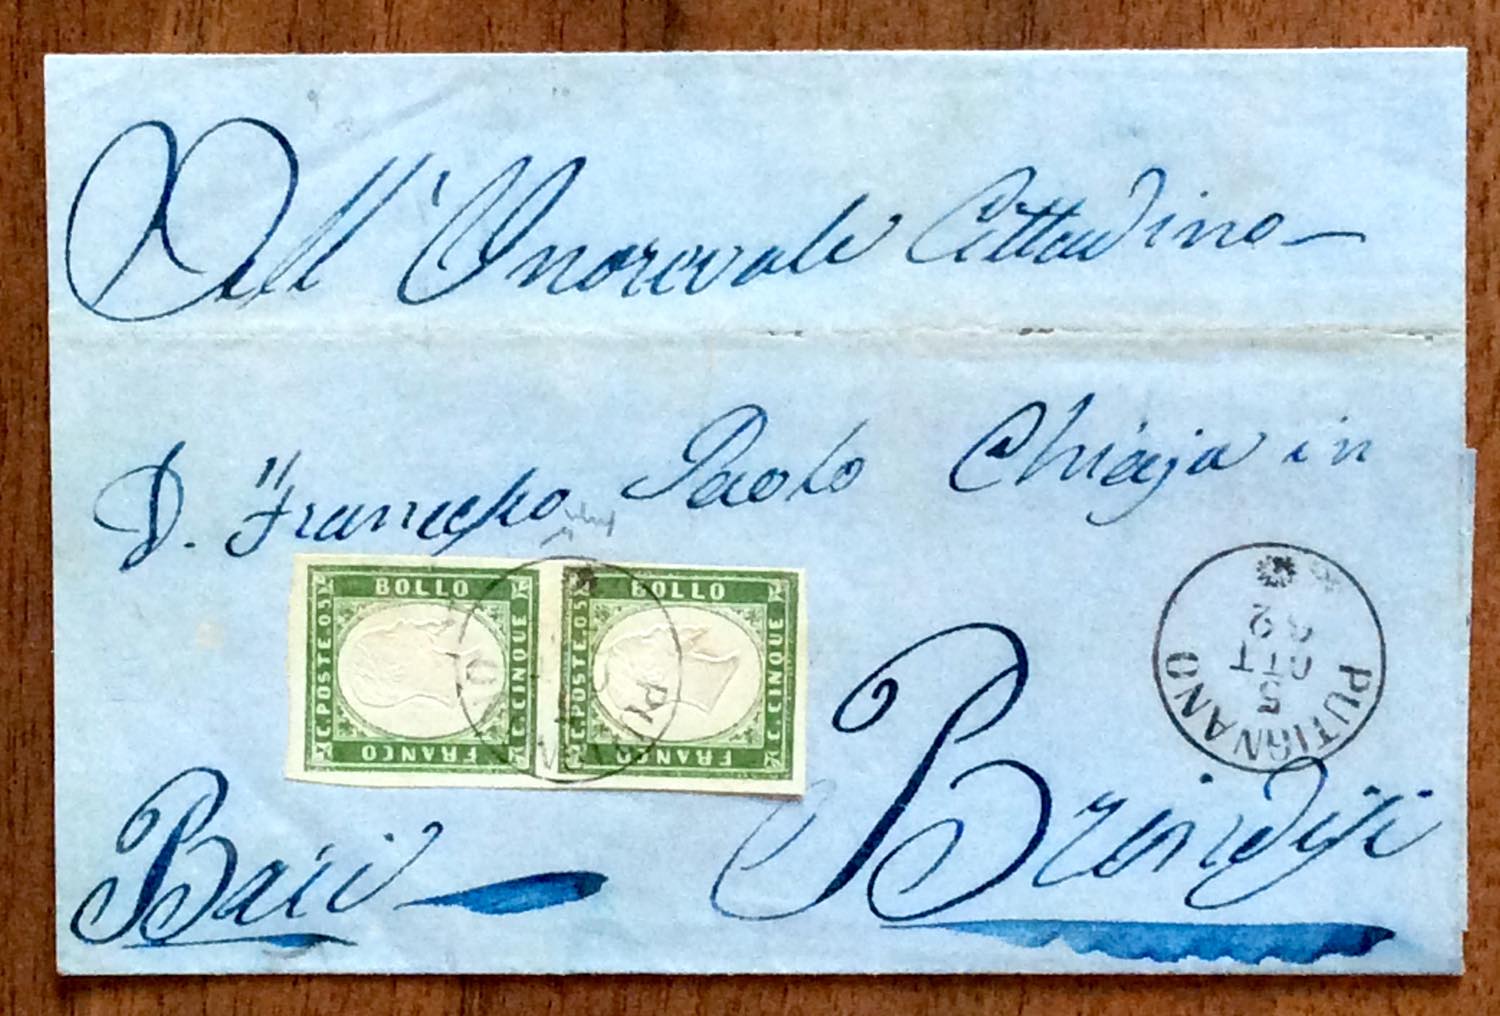 All'Onorevole Cittadino
D. Francesco Paolo Chiaja in
BOLLO
C. POSTE. 05
C. CINQUE
FRANCO
BOLLO
C. POSTE. 05
C. CINQUE
FRANCO
PUTIGNANO
5
OTT
62
Brindisi
Bari